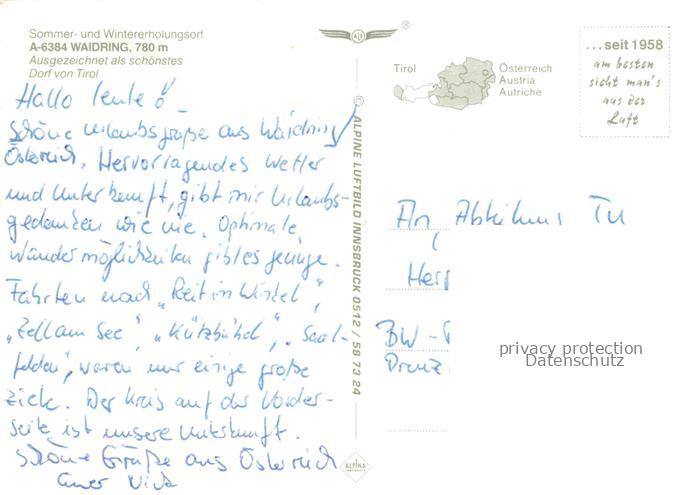 Sommer- und Wintererholungsort
A-6384 WAIDRING, 780 m
Ausgezeichnet als schönstes
Dorf von Tirol
Hallo Leute!
Schöne Urlaubsgrüße aus Waidring/
Österreich. Hervorragendes Wetter
und Unterkunft, gibt mir Urlaubs-
gedanken wie nie. Optimale
Wandermöglichkeiten gibt es genüge.
Fahrten nach „Reit im Winkel",
„Zell am See", „Kützbühel", „Saal-
felden", waren nur einige große
Ziele. Der Kreis auf der Vorder-
seite ist unsere Unterkunft.
Schöne Grüße aus Österreich
Euer
© ALPINE LUFTBILD INNSBRUCK 0512 / 58 73 24
ALPINA
Tirol
Österreich
Austria
Autriche
...seit 1958
am besten
sieht man's
aus der
Luft
An Abteilung
Herr
BW -
privacy protection
Datenschutz